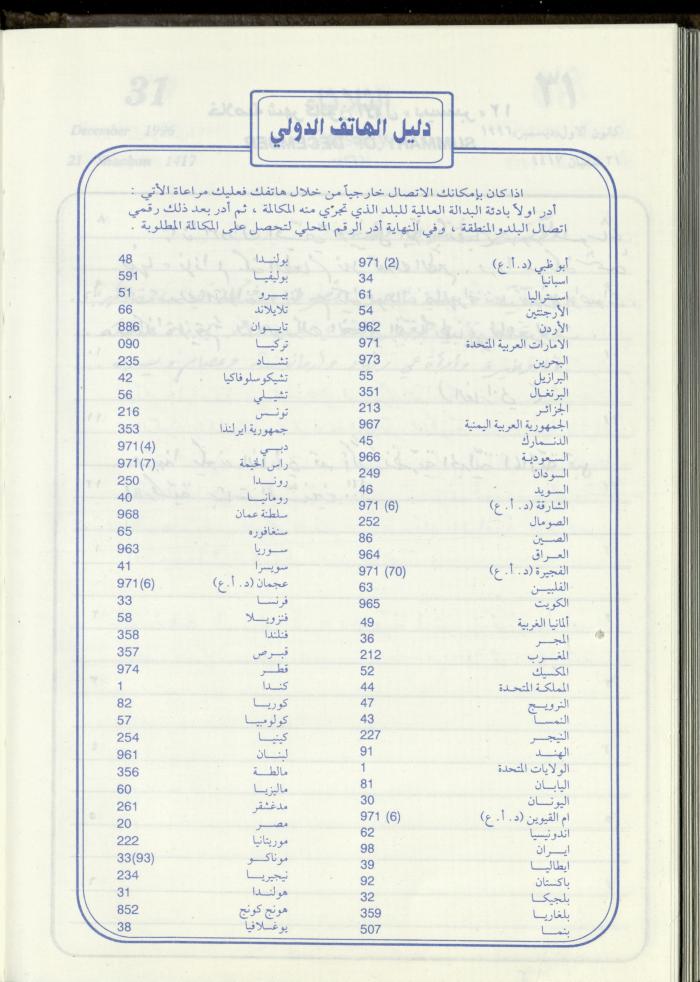 دليل الهاتف الدولي
اذا كان بإمكانك الاتصال خارجياً من خلال هاتفك فعليك مراعاة الأتي :
أدر اولاً بادئة البدالة العالمية للبلد الذي تجرّي منه المكالمة ، ثم أدر بعد ذلك رقمي
اتصال البلد والمنطقة ، وفي النهاية أدر الرقم المحلي لتحصل على المكالمة المطلوبة .
أبو ظبي (د.أ.ع) 971 (2)
اسبانيا 34
استراليا 61
الأرجنتين 54
الأردن 962
الامارات العربية المتحدة 971
البحرين 973
البرازيل 55
البرتغال 351
الجزائر 213
الجمهورية العربية اليمنية 967
الدنمارك 45
السعودية 966
السودان 249
السويد 46
الشارقة (د.أ.ع) 971 (6)
الصومال 252
الصين 86
العراق 964
الفجيرة (د.أ.ع) 971 (70)
الفلبين 63
الكويت 965
ألمانيا الغربية 49
المجر 36
المغرب 212
المكسيك 52
المملكة المتحدة 44
النرويج 47
النمسا 43
النيجر 227
الهند 91
الولايات المتحدة 1
اليابان 81
اليونان 30
ام القيوين (د.أ.ع) 971 (6)
اندونيسيا 62
ايران 98
ايطاليا 39
باكستان 92
بلجيكا 32
بلغاريا 359
بنما 507
بولندا 48
بوليفيا 591
بيرو 51
تلايلاند 66
تايوان 886
تركيا 090
تشاد 235
تشيكوسلوفاكيا 42
تشيلي 56
تونس 216
جمهورية ايرلندا 353
دبي 971(4)
راس الخيمة 971(7)
روندا 250
رومانيا 40
سلطنة عمان 968
سنغافوره 65
سوريا 963
سويسرا 41
عجمان (د.أ.ع) 971(6)
فرنسا 33
فنزويلا 58
فنلندا 358
قبرص 357
قطر 974
كندا 1
كوريا 82
كولومبيا 57
كينيا 254
لبنان 961
مالطة 356
ماليزيا 60
مدغشقر 261
مصر 20
موريتانيا 222
موناكو 33(93)
نيجيريا 234
هولندا 31
هونج كونج 852
يوغلافيا 38